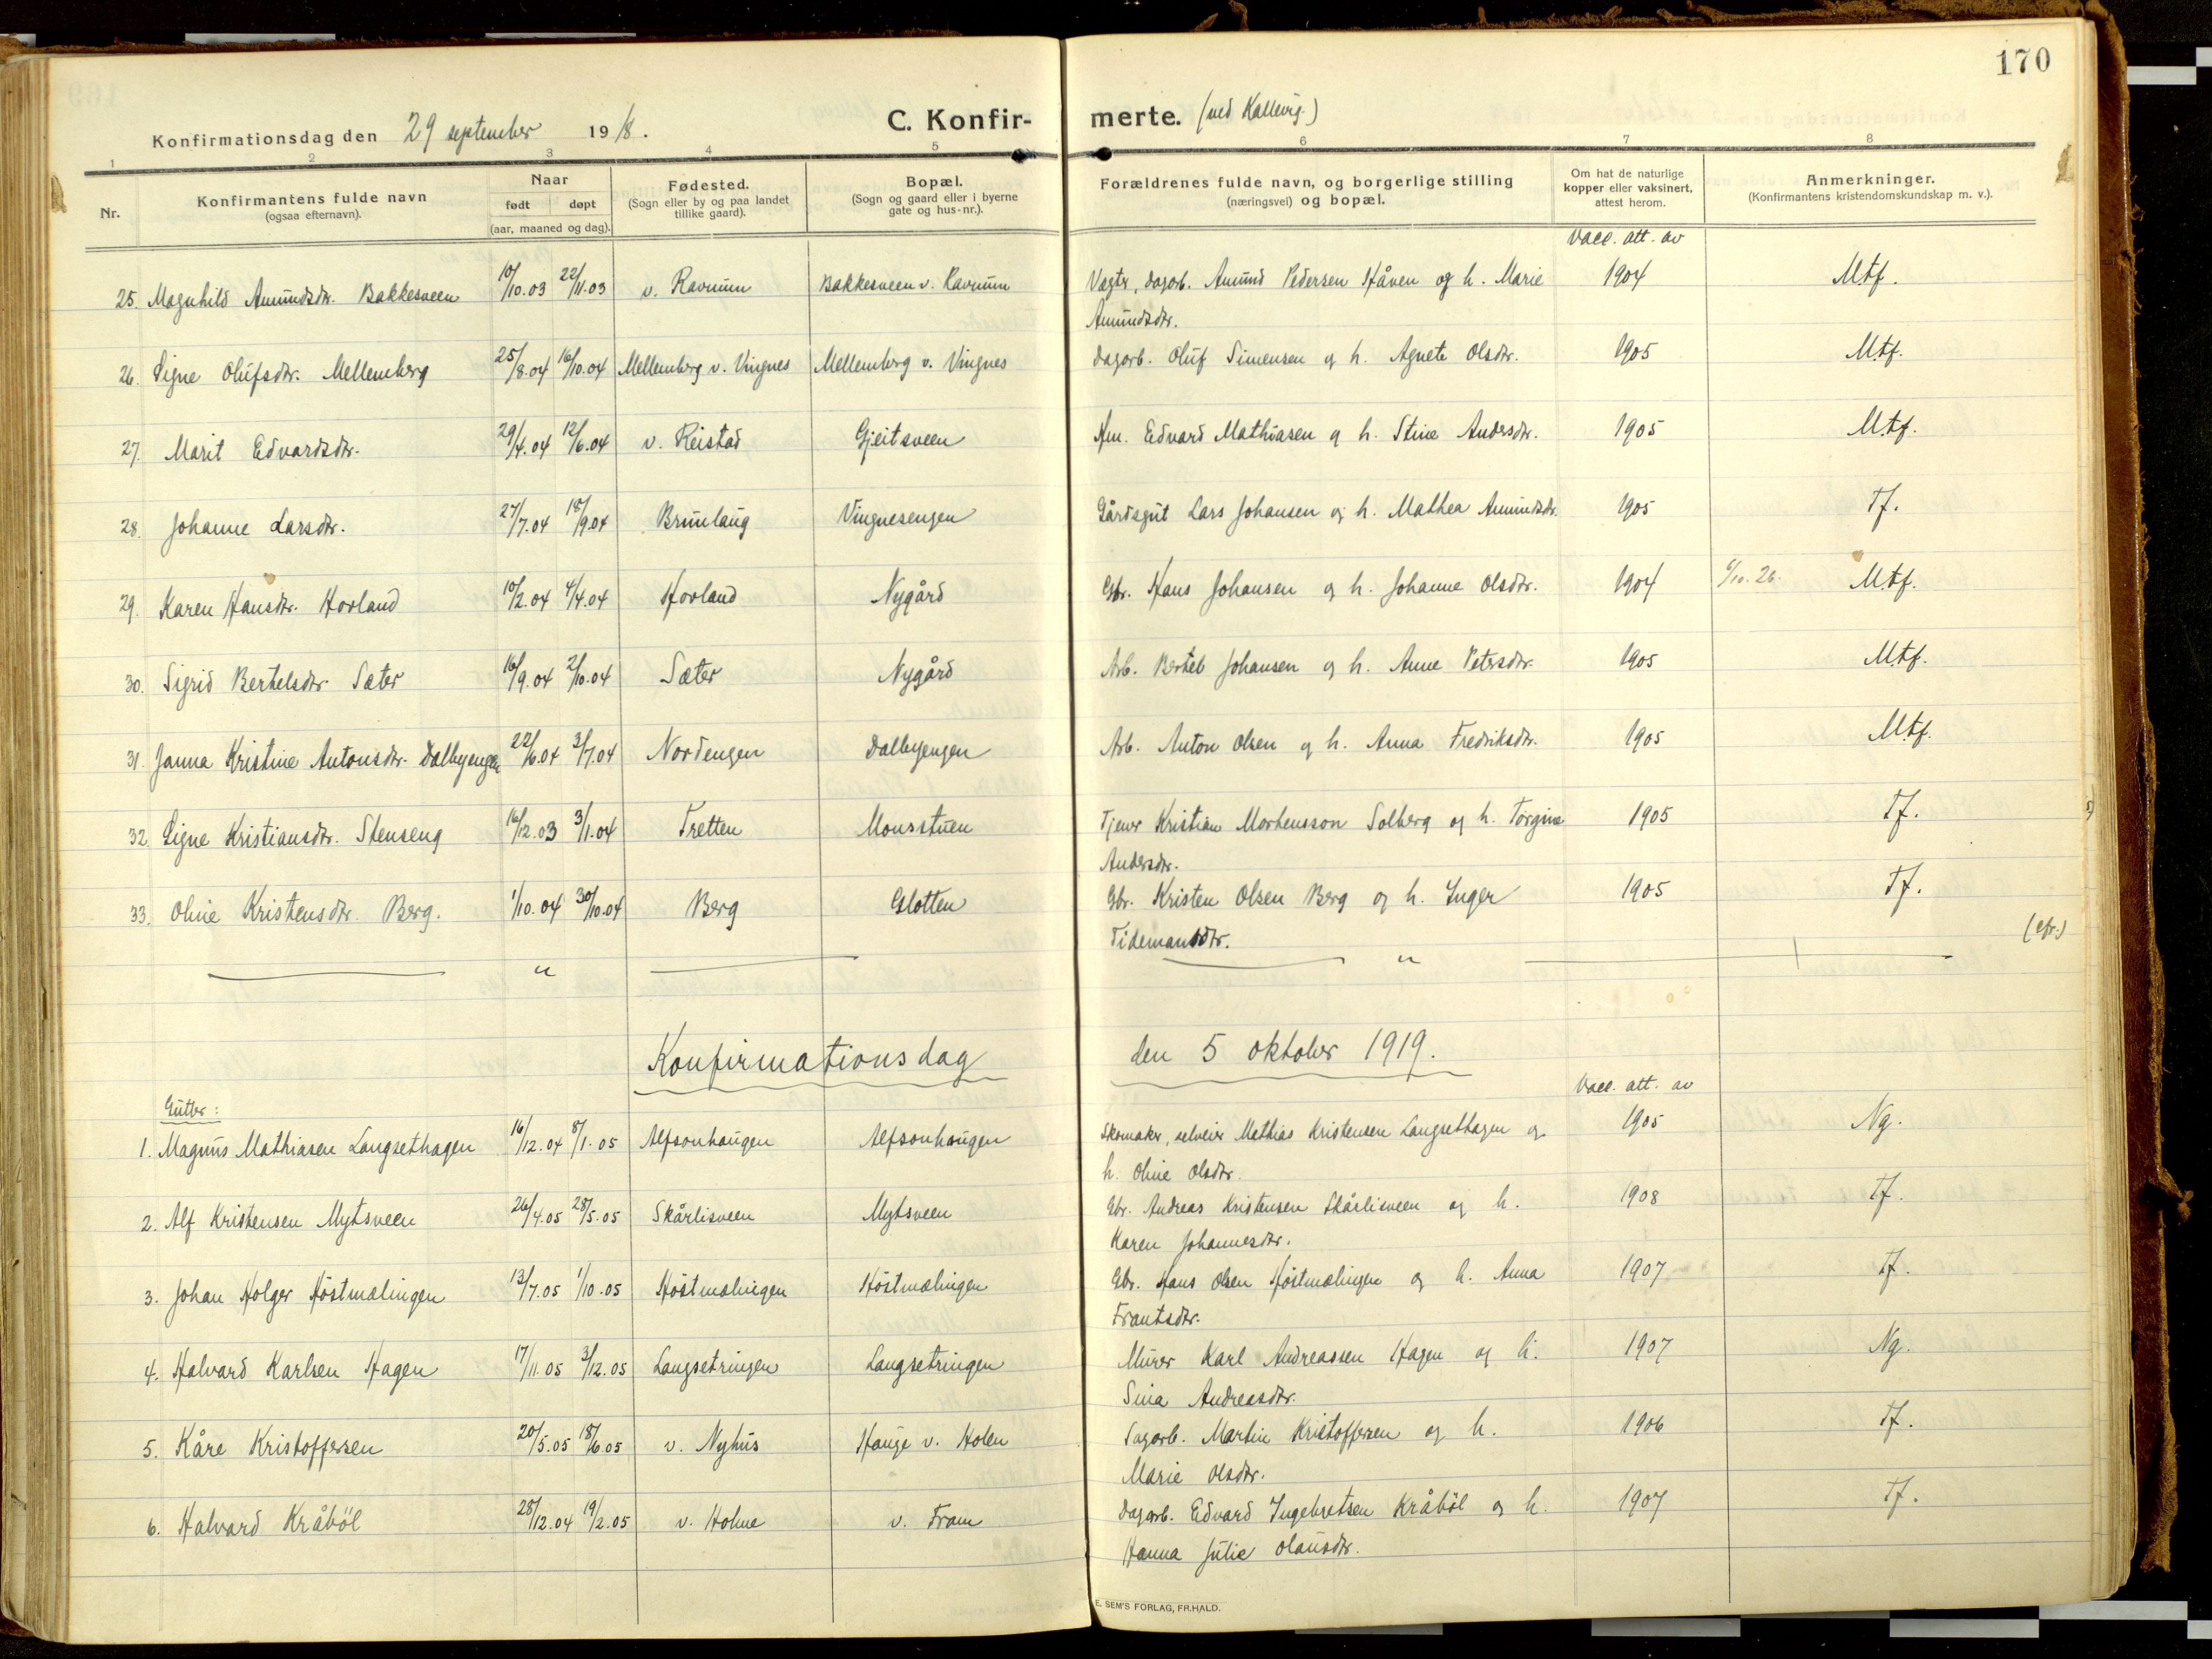 170
Konfirmationsdag den 29 september 1918. C. Konfirmerte. (ved Kallevig.)
1 2 3 4 5 6 7 8
Nr. Konfirmantens fulde navn (ogsaa efternavn). Naar født døpt (aar, maaned og dag). Fødested. (Sogn eller by og paa landet tillike gaard). Bopæl. (Sogn og gaard eller i byerne gate og hus-nr.). Forældrenes fulde navn, og borgerlige stilling (næringsvei) og bopæl. Om hat de naturlige kopper eller vaksinert, attest herom. Anmerkninger. (Konfirmantens kristendomskundskap m. v.).
Vacc. att. av
25. Magnhild Amundsdr. Bakkesveen 10/10.03 22/11.03 v. Ravnum Bakkesveen v. Ravnum Vogtr, dagarb. Amund Pedersen Håven og h. Marie 1904 M.tf.
Amundsdr.
26. Signe Olufsdr. Mellemberg 25/8.04 16/10.04 Mellemberg v. Vingnes Mellemberg v. Vingnes Dagarb. Oluf Simensen og h. Agnete Olsdr. 1905 M.tf.
27. Marit Edvardsdr. 29/4.04 12/6.04 v. Reistad Gjeitsveen Hm. Edvard Mathiasen og h. Stine Andersdr. 1905 M.tf.
28. Johanne Larsdr. 27/7.04 18/9.04 Brunlaug Vingnesengen Gårdsgut Lars Johansen og h. Mathea Amundsdr. 1905 Tf.
29. Karen Hansdr. Hovland 10/2.04 4/4.04 Hovland Nygård Gbr. Hans Johansen og h. Johanne Olsdr. 1904 6/10.26. M.tf.
30. Sigrid Bertelsdr. Sæter 16/9.04 2/10.04 Sæter Nygård Arb. Bertel Johansen og h. Anne Petersdr. 1905 M.tf.
31. Janna Kristine Antonsdr. Dalbyengen 22/6.04 3/7.04 Nordengen Dalbyengen Arb. Anton Olsen og h. Anna Fredriksdr. 1905 M.tf.
32. Signe Kristiansdr. Stenseng 16/12.03 3/1.04 Tretten Monsstuen Tjener Kristian Mortensson Solberg og h. Torgine 1905 Tf.
Andersdr.
33. Oline Kristensdr. Berg. 1/10.04 30/10.04 Berg Glotten Gbr. Kristen Olsen Berg og h. Inger 1905 Tf.
Tidemansdr. (cfr.)
Konfirmationsdag den 5 oktober 1919.
Vacc. att. av
Gutter:
1. Magnus Mathiasen Langsethagen 16/12.04 8/1.05 Alfsonhaugen Alfsonhaugen Skomaker, selveier Mathias Kristensen Langsethagen og 1905 Ng.
h. Oline Olsdr.
2. Alf Kristensen Mytsveen 26/4.05 28/5.05 Skårlisveen Mytsveen Gbr. Andreas Kristensen Skårlisveen og h. 1908 Tf.
Karen Johannesdr.
3. Johan Holger Höstmælingen 13/7.05 1/10.05 Höstmælingen Höstmælingen Gbr. Hans Olsen Höstmælingen og h. Anna 1907 Tf.
Frantsdr.
4. Halvard Karlsen Hagen 17/11.05 3/12.05 Langsetringen Langsetringen Murer Karl Andreassen Hagen og h. 1907 Ng.
Sina Andreasdr.
5. Kåre Kristoffersen 20/5.05 18/6.05 v. Nyhus Hauge v. Holen Sagarb. Martin Kristoffersen og h. 1906 Tf.
Marie Olsdr.
6. Halvard Kråböl 28/12.04 19/2.05 v. Holme v. Fram Dagarb. Edvard Ingebretsen Kråböl og h. 1907 Tf.
Hanna Julie Olausdr.
E. SEM'S FORLAG, FR.HALD.